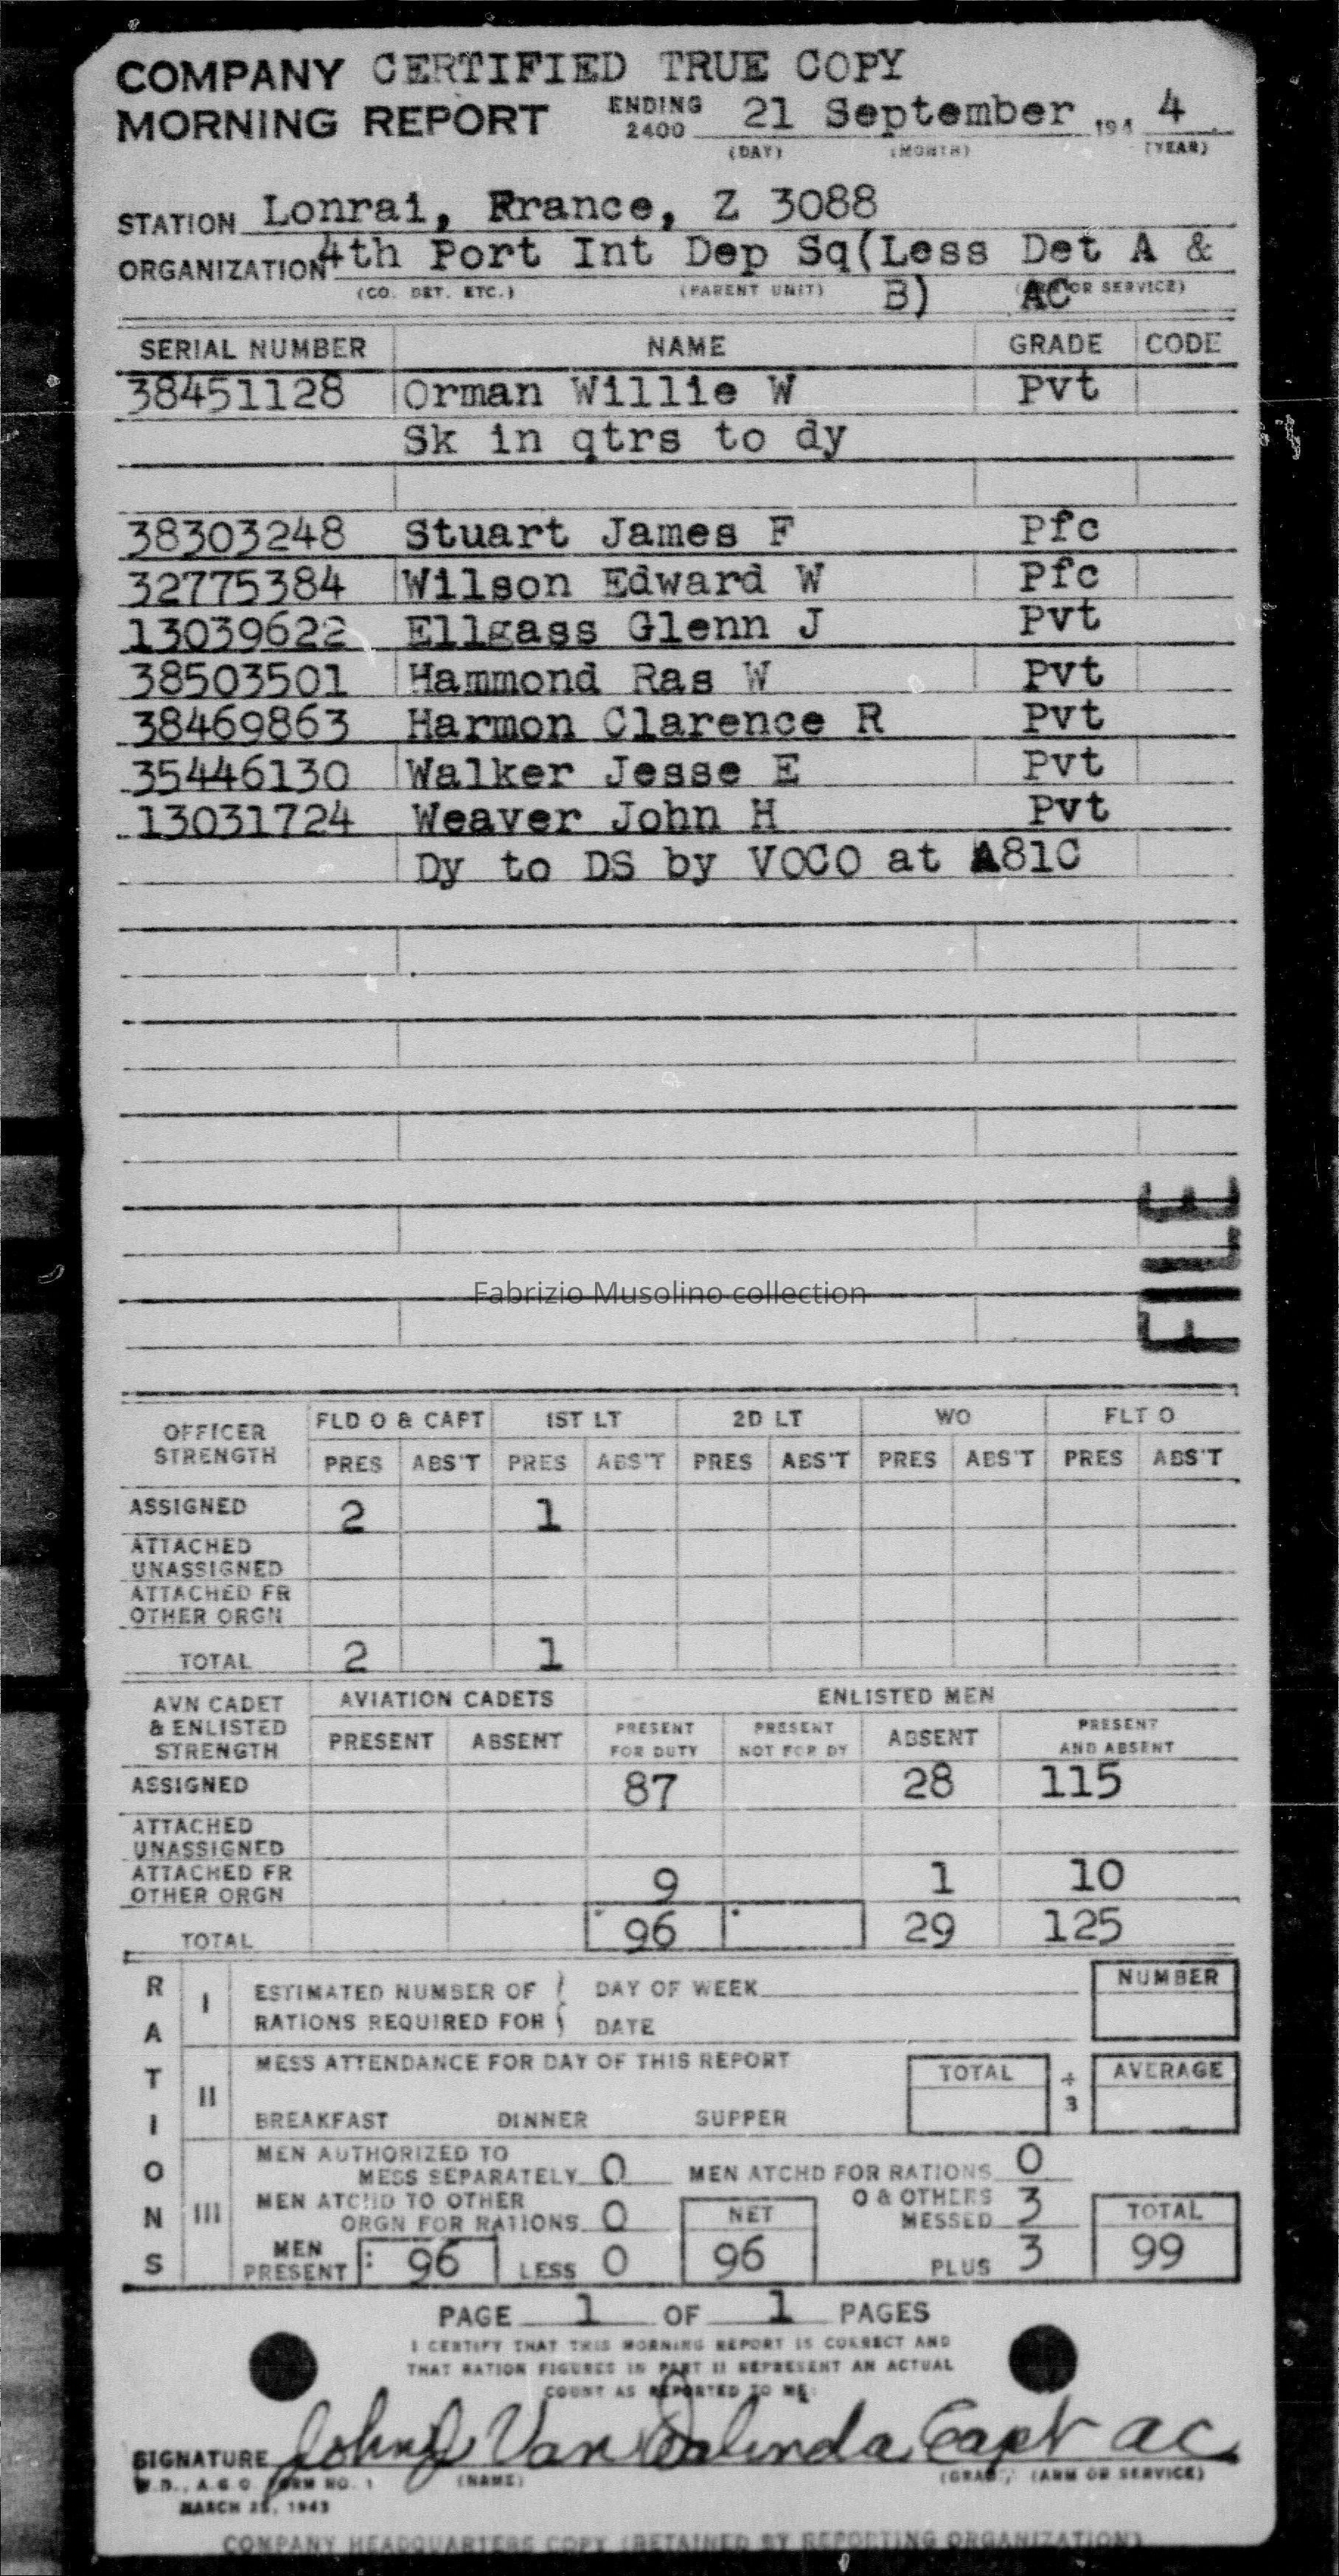 COMPANY CERTIFIED TRUE COPY
MORNING REPORT ENDING 2400 21 September 194 4
(DAY) (MONTH) (YEAR)
STATION Lonrai, Rrance, Z 3088
ORGANIZATION 4th Port Int Dep Sq(Less Det A &
(CO. DET. ETC.) (PARENT UNIT) B) AC OR SERVICE)
SERIAL NUMBER NAME GRADE CODE
38451128 Orman Willie W Pvt
Sk in qtrs to dy
38303248 Stuart James F Pfc
32775384 Wilson Edward W Pfc
13039622 Ellgass Glenn J Pvt
38503501 Hammond Ras W Pvt
38469863 Harmon Clarence R Pvt
35446130 Walker Jesse E Pvt
13031724 Weaver John H Pvt
Dy to DS by VOCO at A81C
FILE
Fabrizio Musolino collection
OFFICER STRENGTH FLD O & CAPT 1ST LT 2D LT WO FLT O
PRES ABS'T PRES ABS'T PRES ABS'T PRES ABS'T PRES ABS'T
ASSIGNED 2 1
ATTACHED UNASSIGNED
ATTACHED FR OTHER ORGN
TOTAL 2 1
AVN CADET & ENLISTED STRENGTH AVIATION CADETS ENLISTED MEN
PRESENT ABSENT PRESENT FOR DUTY PRESENT NOT FOR DY ABSENT PRESENT AND ABSENT
ASSIGNED 87 28 115
ATTACHED UNASSIGNED
ATTACHED FR OTHER ORGN 9 1 10
TOTAL 96 29 125
RATIONS
I ESTIMATED NUMBER OF DAY OF WEEK NUMBER
RATIONS REQUIRED FOR DATE
II MESS ATTENDANCE FOR DAY OF THIS REPORT TOTAL ÷ 3 AVERAGE
BREAKFAST DINNER SUPPER
III MEN AUTHORIZED TO
MESS SEPARATELY 0 MEN ATCHD FOR RATIONS 0
MEN ATCHD TO OTHER O & OTHERS
ORGN FOR RATIONS 0 NET MESSED 3 TOTAL
MEN PRESENT : 96 LESS 0 96 PLUS 3 99
PAGE 1 OF 1 PAGES
I CERTIFY THAT THIS MORNING REPORT IS CORRECT AND
THAT RATION FIGURES IN PART II REPRESENT AN ACTUAL
COUNT AS REPORTED TO ME:
SIGNATURE John Van Capt AC
W.D., A.G.O. FORM NO. 1 (NAME) (GRADE) (ARM OR SERVICE)
MARCH 25, 1943
COMPANY HEADQUARTERS COPY (RETAINED BY REPORTING ORGANIZATION)